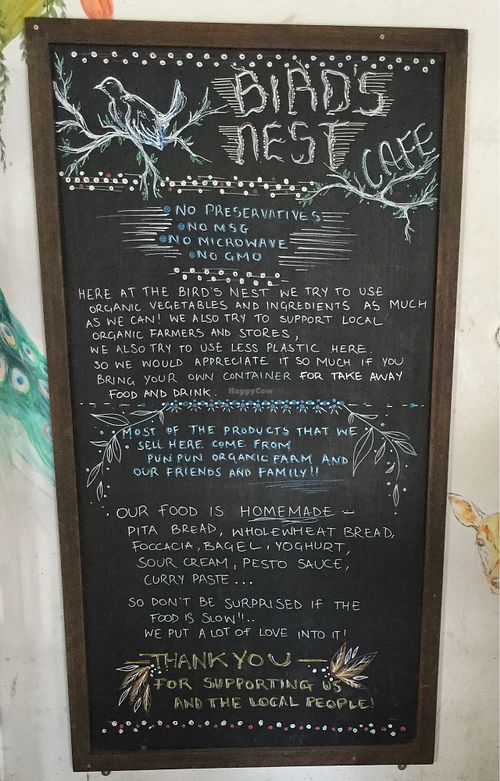 BIRD'S
NEST
CAFE
NO PRESERVATIVES
NO MSG
NO MICROWAVE
NO GMO
HERE AT THE BIRD'S NEST WE TRY TO USE
ORGANIC VEGETABLES AND INGREDIENTS AS MUCH
AS WE CAN! WE ALSO TRY TO SUPPORT LOCAL
ORGANIC FARMERS AND STORES,
WE ALSO TRY TO USE LESS PLASTIC HERE.
SO WE WOULD APPRECIATE IT SO MUCH IF YOU
BRING YOUR OWN CONTAINER FOR TAKE AWAY
FOOD AND DRINK
HappyCow
MOST OF THE PRODUCTS THAT WE
SELL HERE COME FROM
PUN PUN ORGANIC FARM AND
OUR FRIENDS AND FAMILY!!
OUR FOOD IS HOMEMADE -
PITA BREAD, WHOLEWHEAT BREAD,
FOCCACIA, BAGEL, YOGHURT,
SOUR CREAM, PESTO SAUCE,
CURRY PASTE...
SO DON'T BE SURPRISED IF THE
FOOD IS SLOW!!..
WE PUT A LOT OF LOVE INTO IT!
- THANK YOU -
FOR SUPPORTING US
AND THE LOCAL PEOPLE!